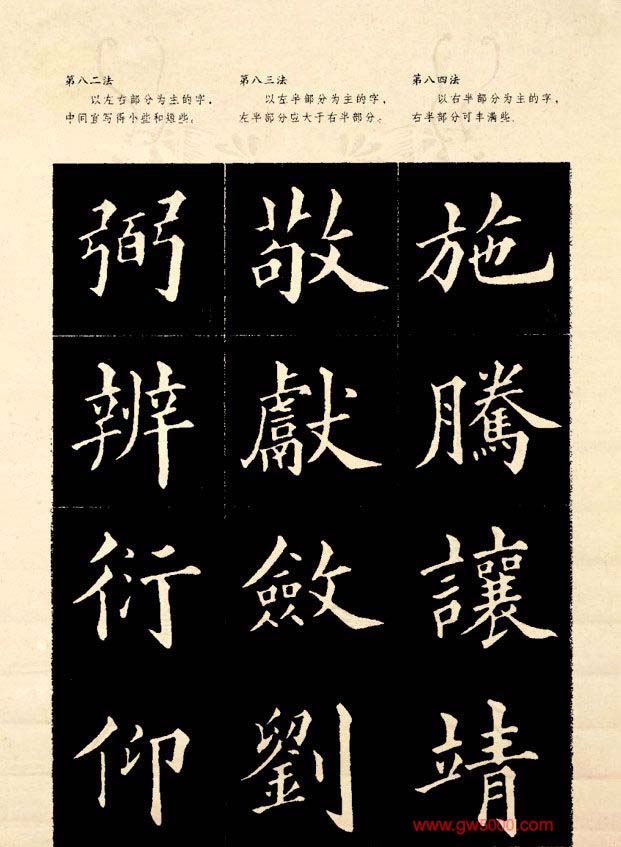 第八二法
以左右部分为主的字，
中间宜写得小些和短些。
第八三法
以左半部分为主的字，
左半部分应大于右半部分。
第八四法
以右半部分为主的字，
右半部分可丰满些.
弼 敬 施
辨 獻 騰
衍 斂 讓
仰 劉 靖
www.gw3000l.com